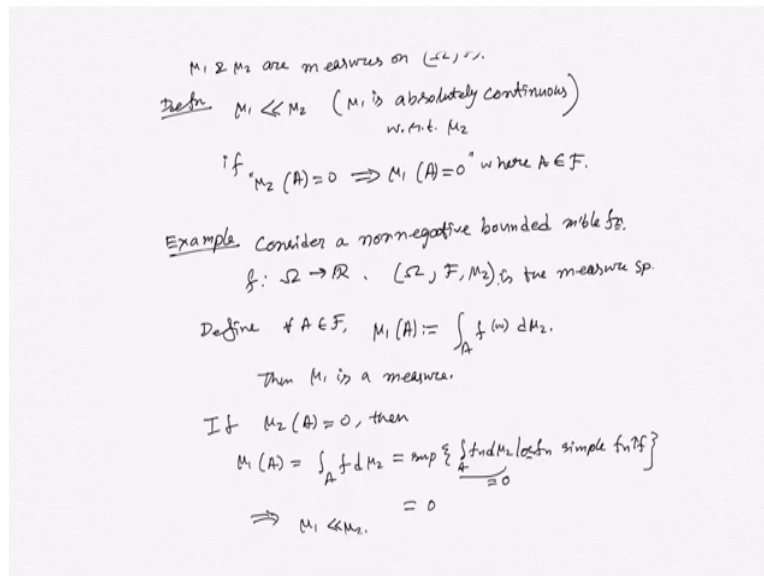 μ₁ & μ₂ are measures on (Ω,
Defn μ₁ ≪ μ₂ (μ₁ is absolutely continuous)
w.r.t. μ₂
if "μ₂ (A)=0 ⟹ μ₁ (A)=0" where A ∈ F.
Example Consider a nonnegative bounded m'ble fn.
f: Ω → ℝ. (Ω, F, μ₂) is the measure sp.
Define ∀ A ∈ F, μ₁(A) := ∫_A f(ω) dμ₂.
Then μ₁ is a measure.
If μ₂(A)=0, then
μ₁(A) = ∫_A f dμ₂ = sup { ∫_A fn dμ₂ | 0≤fn simple fn↑f }
=0
= 0
⟹ μ₁ ≪ μ₂.